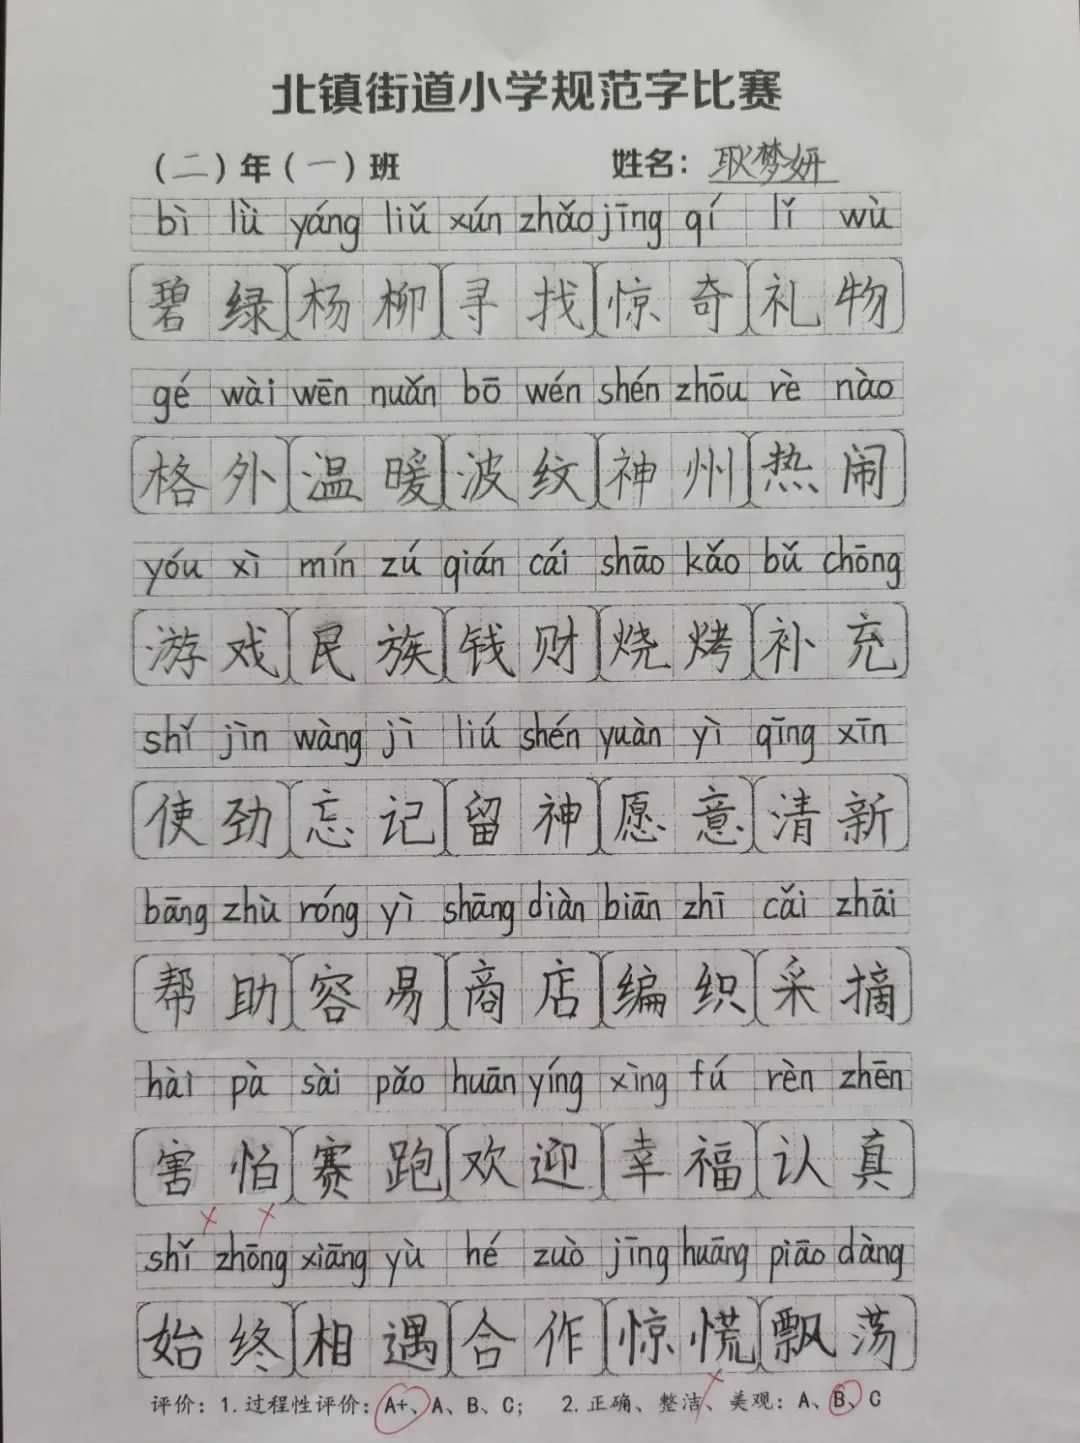 北镇街道小学规范字比赛
（二）年（一）班 姓名：耿梦妍
bì lǜ yáng liǔ xún zhǎo jīng qí lǐ wù
碧绿 杨柳 寻找 惊奇 礼物
gé wài wēn nuǎn bō wén shén zhōu rè nào
格外 温暖 波纹 神州 热闹
yóu xì mín zú qián cái shāo kǎo bǔ chōng
游戏 民族 钱财 烧烤 补充
shǐ jìn wàng jì liú shén yuàn yì qīng xīn
使劲 忘记 留神 愿意 清新
bāng zhù róng yì shāng diàn biān zhī cǎi zhāi
帮助 容易 商店 编织 采摘
hài pà sài pǎo huān yíng xìng fú rèn zhēn
害怕 赛跑 欢迎 幸福 认真
shǐ zhōng xiāng yù hé zuò jīng huāng piāo dàng
始终 相遇 合作 惊慌 飘荡
评价：1.过程性评价：A+、A、B、C； 2.正确、整洁、美观：A、B、C